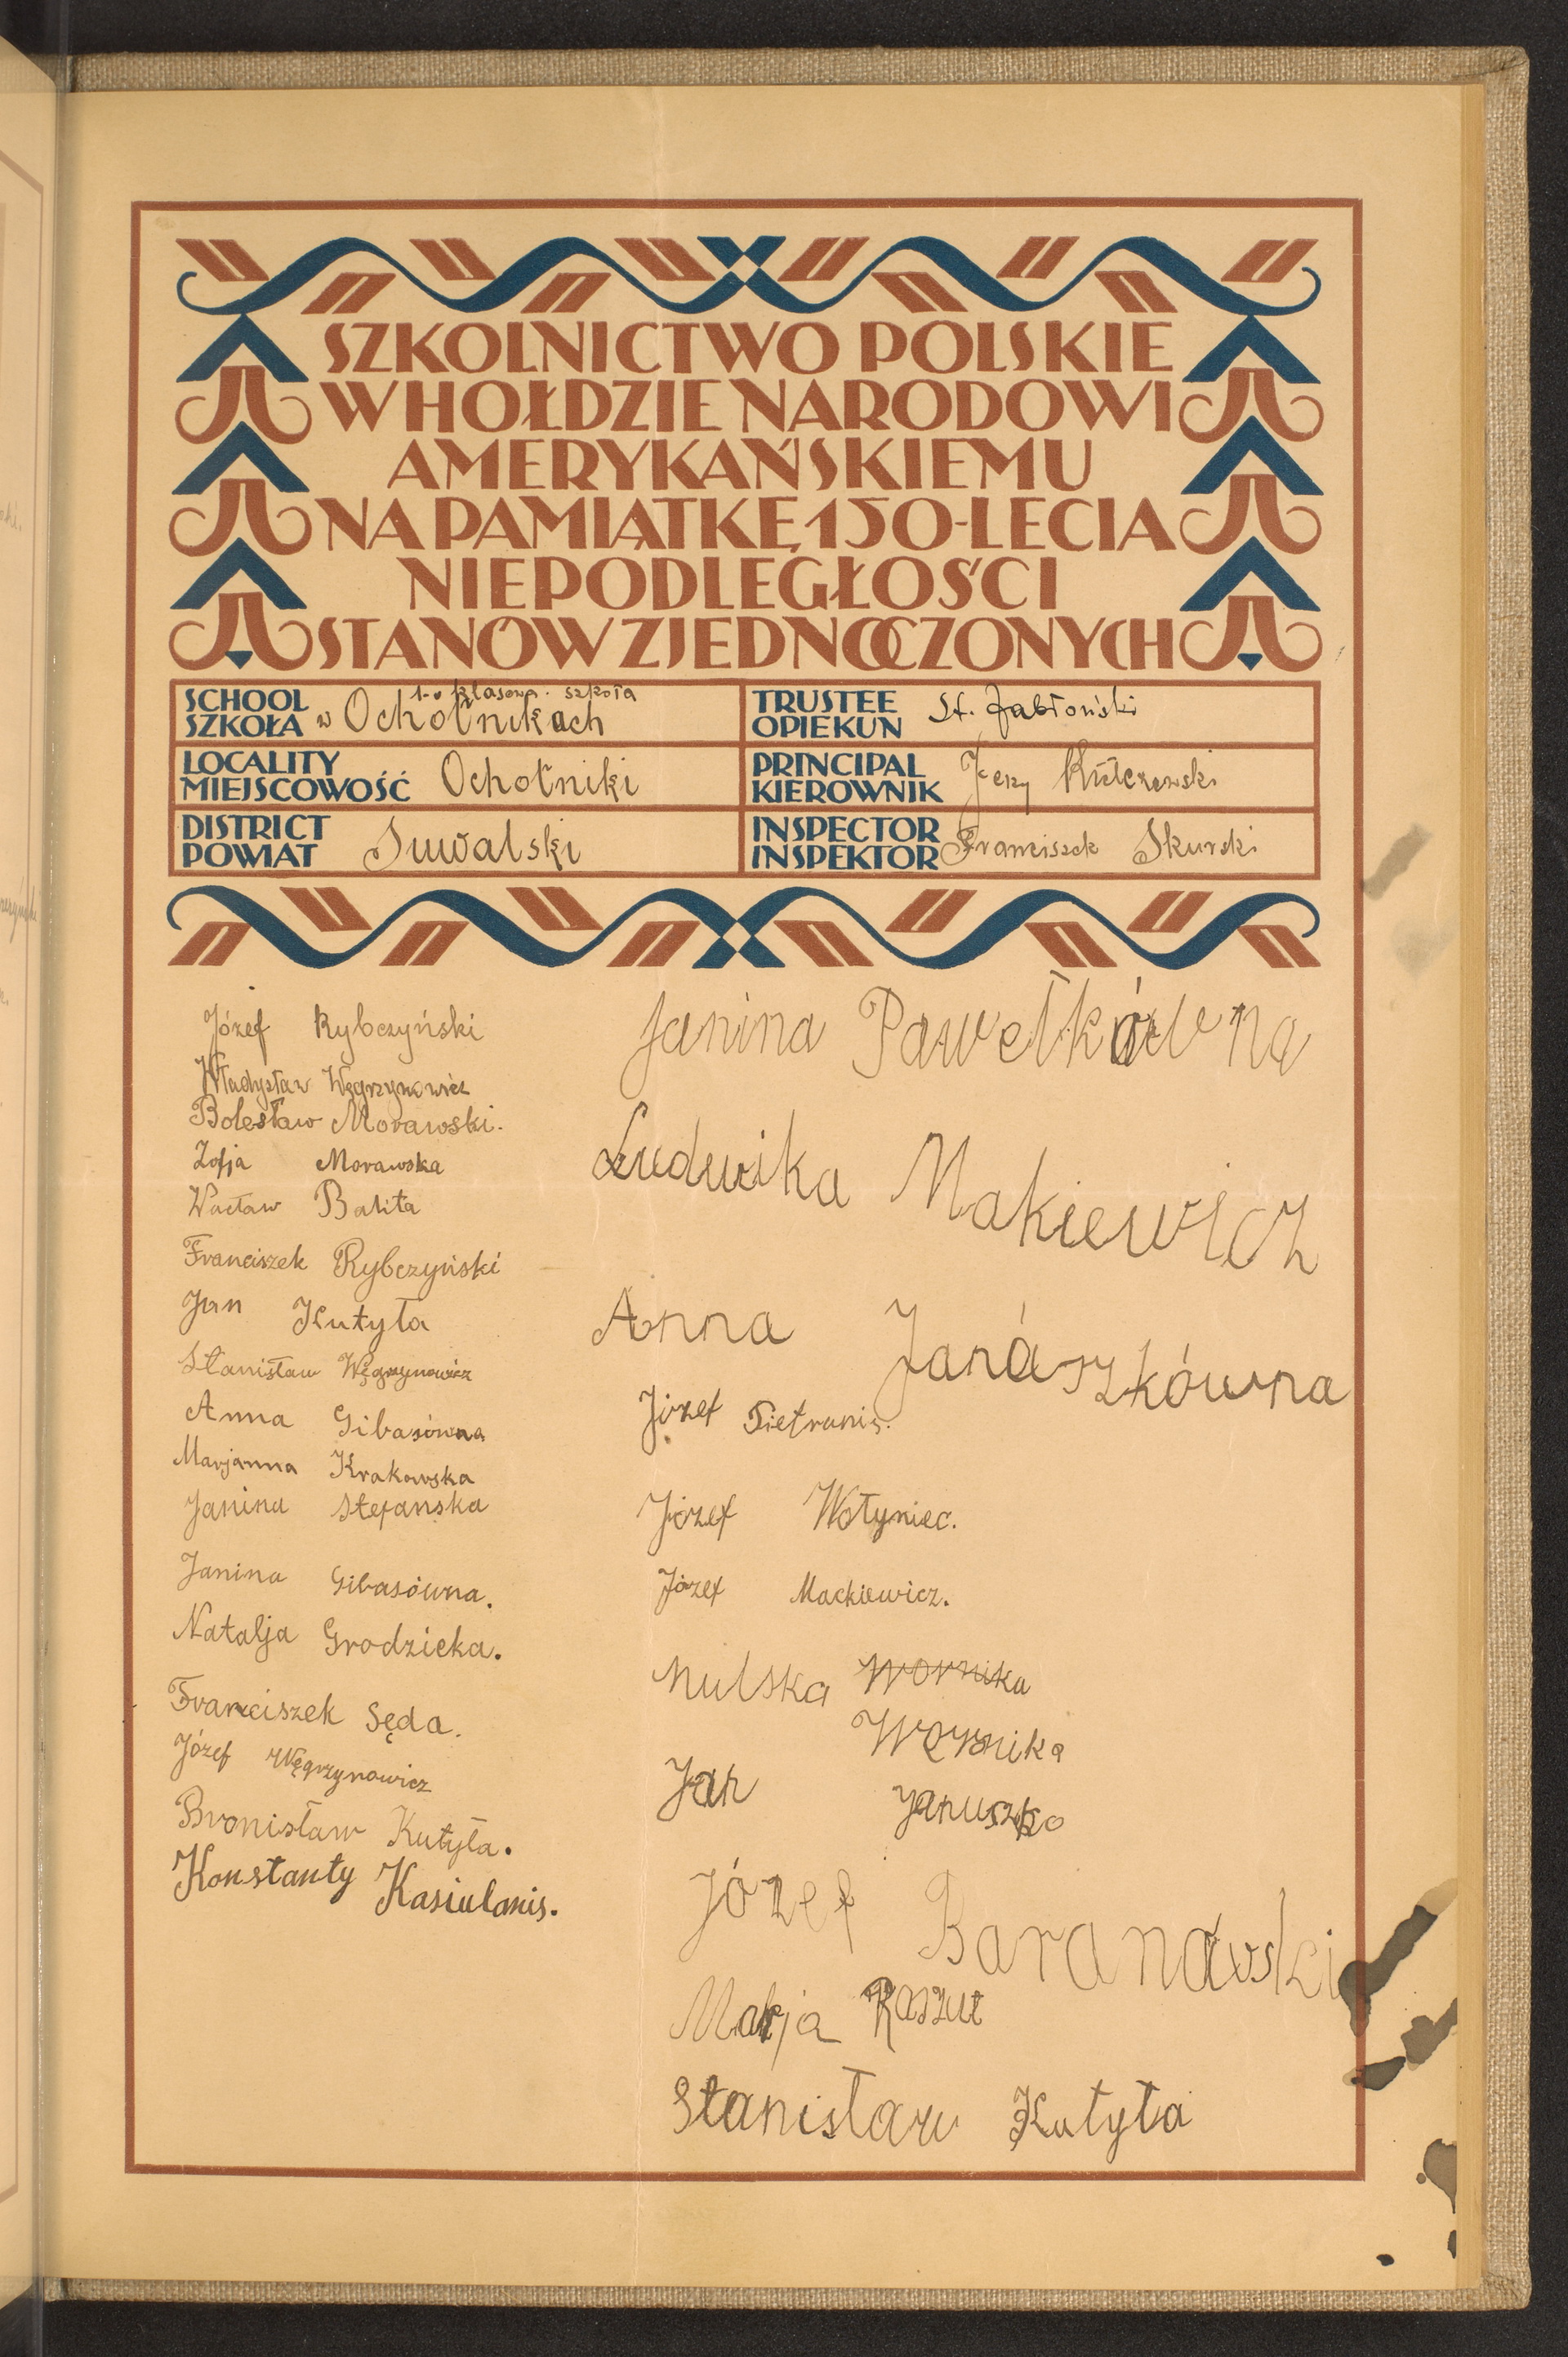 SZKOLNICTWO POLSKIE
W HOŁDZIE NARODOWI
AMERYKAŃSKIEMU
NA PAMIĄTKĘ 150-LECIA
NIEPODLEGŁOŚCI
STANÓW ZJEDNOCZONYCH
SCHOOL
SZKOŁA
1-o klasowa szkoła
w Ochotnikach
TRUSTEE
OPIEKUN
St. Jabłoński
LOCALITY
MIEJSCOWOŚĆ
Ochotniki
PRINCIPAL
KIEROWNIK
Jerzy Kulczewski
DISTRICT
POWIAT
Suwalski
INSPECTOR
INSPEKTOR
Franciszek Skurski
Józef Rybczyński
Władysław Węgrzynowicz
Bolesław Morawski.
Zofja Morawska
Wacław Balita
Franciszek Rybczyński
Jan Kutyła
Stanisław Węgrzynowicz
Anna Gibasówna
Marjanna Krakowska
Janina Stefanska
Janina Gibasówna.
Natalja Grodzicka.
Franciszek Sęda.
Józef Węgrzynowicz
Bronisław Kutyła.
Konstanty Kasiulanis.
Janina Pawełkówna
Ludwika Makiewicz
Anna Janászkówna
Józef Pietranis.
Józef Wołyniec.
Józef Mackiewicz.
Nulska Wornika
Weronika
Jan Januszko
Józef Baranowski
Marja Raszut
Stanisław Kutyła